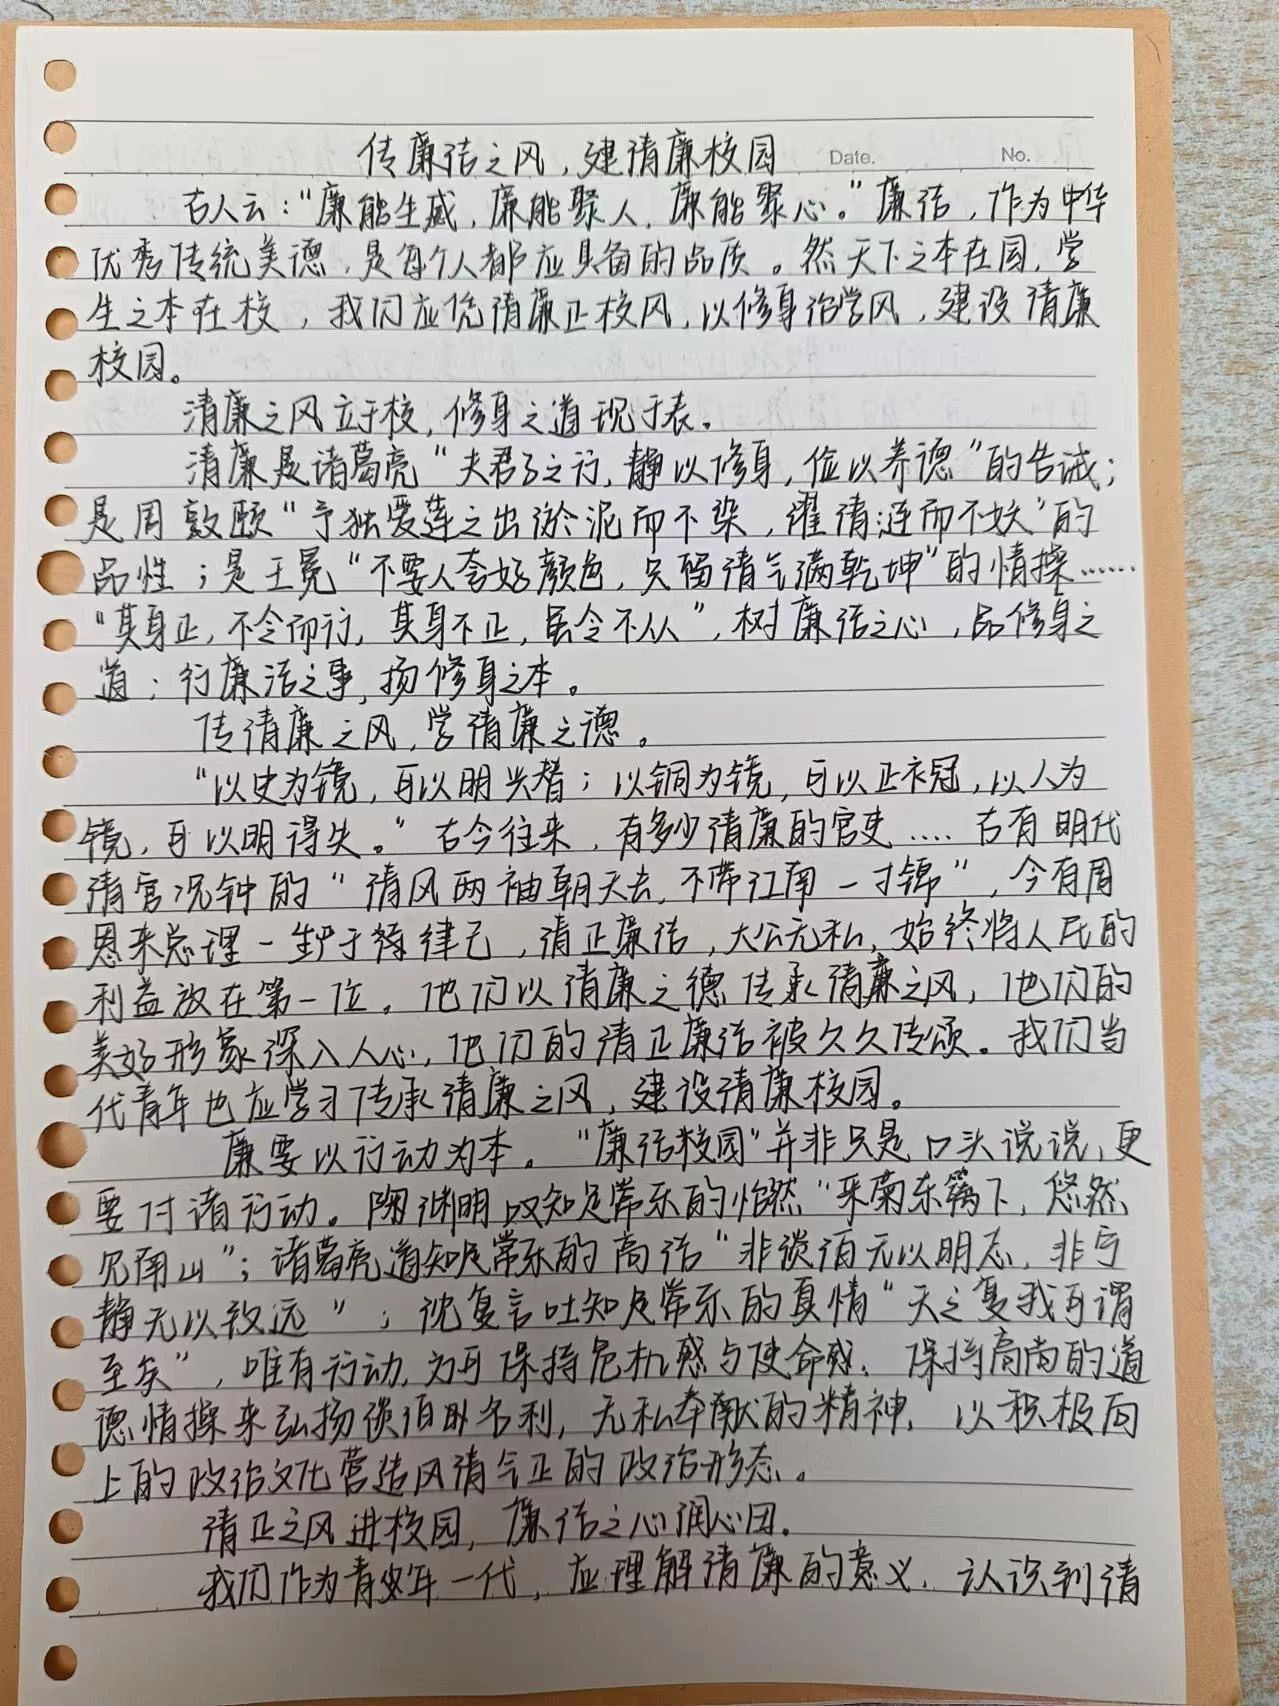 传廉洁之风，建清廉校园
Date.
No.
古人云："廉能生威，廉能聚人，廉能聚心。"廉洁，作为中华
优秀传统美德，是每个人都应具备的品质。然天下之本在国，学
生之本在校，我们应凭清廉正校风，以修身治学风，建设清廉
校园。
清廉之风立于校，修身之道现于表。
清廉是诸葛亮"夫君子之行，静以修身，俭以养德"的告诫；
是周敦颐"予独爱莲之出淤泥而不染，濯清涟而不妖"的
品性；是王冕"不要人夸好颜色，只留清气满乾坤"的情操……
"其身正，不令而行，其身不正，虽令不从"，树廉洁之心，品修身之
道；行廉洁之事，扬修身之本。
传清廉之风，学清廉之德。
"以史为镜，可以明兴替；以铜为镜，可以正衣冠，以人为
镜，可以明得失。"古今往来，有多少清廉的官吏……古有明代
清官况钟的"清风两袖朝天去，不带江南一寸锦"，今有周
恩来总理一生严于律己，清正廉洁，大公无私，始终将人民的
利益放在第一位。他们以清廉之德传承清廉之风，他们的
美好形象深入人心，他们的清正廉洁被久久传颂。我们当
代青年也应学习传承清廉之风，建设清廉校园。
廉要以行动为本。"廉洁校园"并非只是口头说说，更
要付诸行动。陶渊明叹知足常乐的怡然"采菊东篱下，悠然
见南山"；诸葛亮道知足常乐的高洁"非淡泊无以明志，非宁
静无以致远"；沈复言吐知足常乐的真情"天之复我可谓
至矣"，唯有行动，方可保持危机感与使命感，保持高尚的道
德情操来弘扬淡泊名利，无私奉献的精神，以积极向
上的政治文化营造风清气正的政治形态。
清正之风进校园，廉洁之心润心田。
我们作为青少年一代，应理解清廉的意义，认识到清